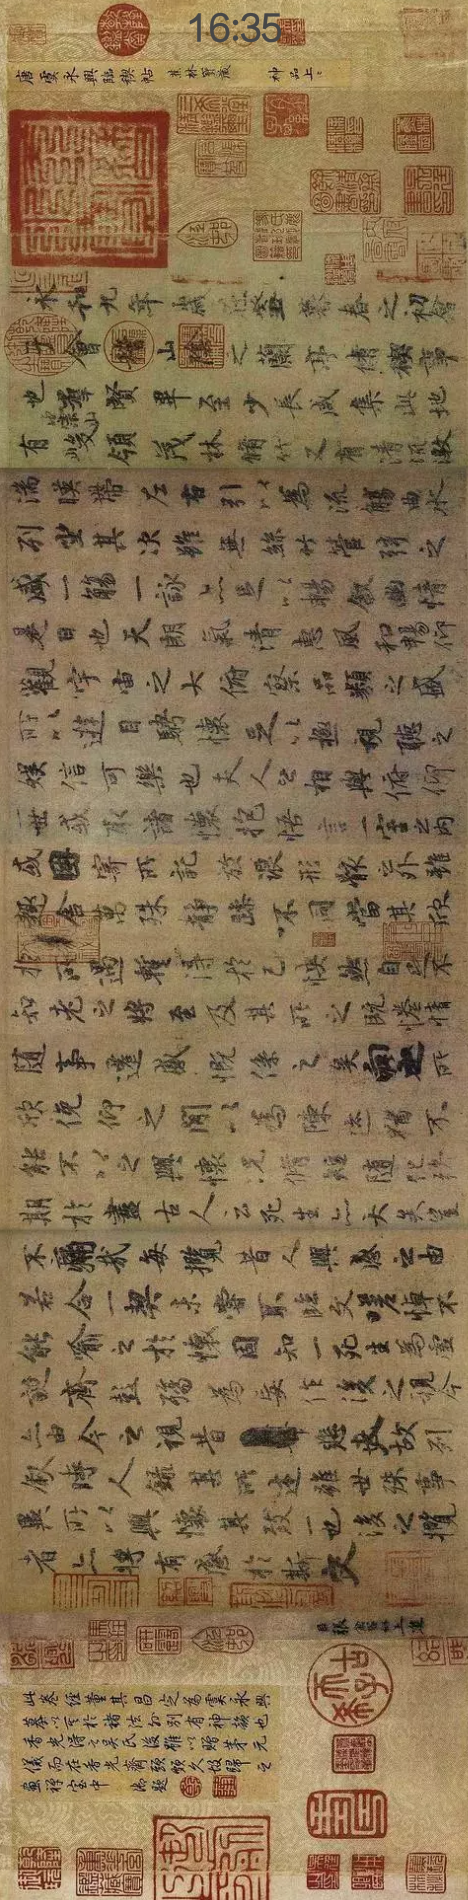 16:35
唐虞永興臨稧帖 神品上上
永和九年歲在癸丑暮春之初會
于會稽山陰之蘭亭脩稧事
也群賢畢至少長咸集此地
有崇山峻領茂林脩竹又有清流激
湍暎帶左右引以為流觴曲水
列坐其次雖無絲竹管弦之
盛一觴一詠亦足以暢敘幽情
是日也天朗氣清惠風和暢仰
觀宇宙之大俯察品類之盛
所以遊目騁懷足以極視聽之
娛信可樂也夫人之相與俯仰
一世或取諸懷抱悟言一室之內
或因寄所託放浪形骸之外雖
趣舍萬殊靜躁不同當其欣
於所遇蹔得於己快然自足不
知老之將至及其所之既惓情
隨事遷感慨係之矣向之所
欣俛仰之閒以為陳迹猶不
能不以之興懷況脩短隨化終
期於盡古人云死生亦大矣豈
不痛哉每攬昔人興感之由
若合一契未嘗不臨文嗟悼不
能喻之於懷固知一死生為虛
誕齊彭殤為妄作後之視今
亦由今之視昔悲夫故列
敘時人錄其所述雖世殊事
異所以興懷其致一也後之攬
者亦將有感於斯文
此卷經董其昌定為虞永興
摹以其於褚法外別有神韻也